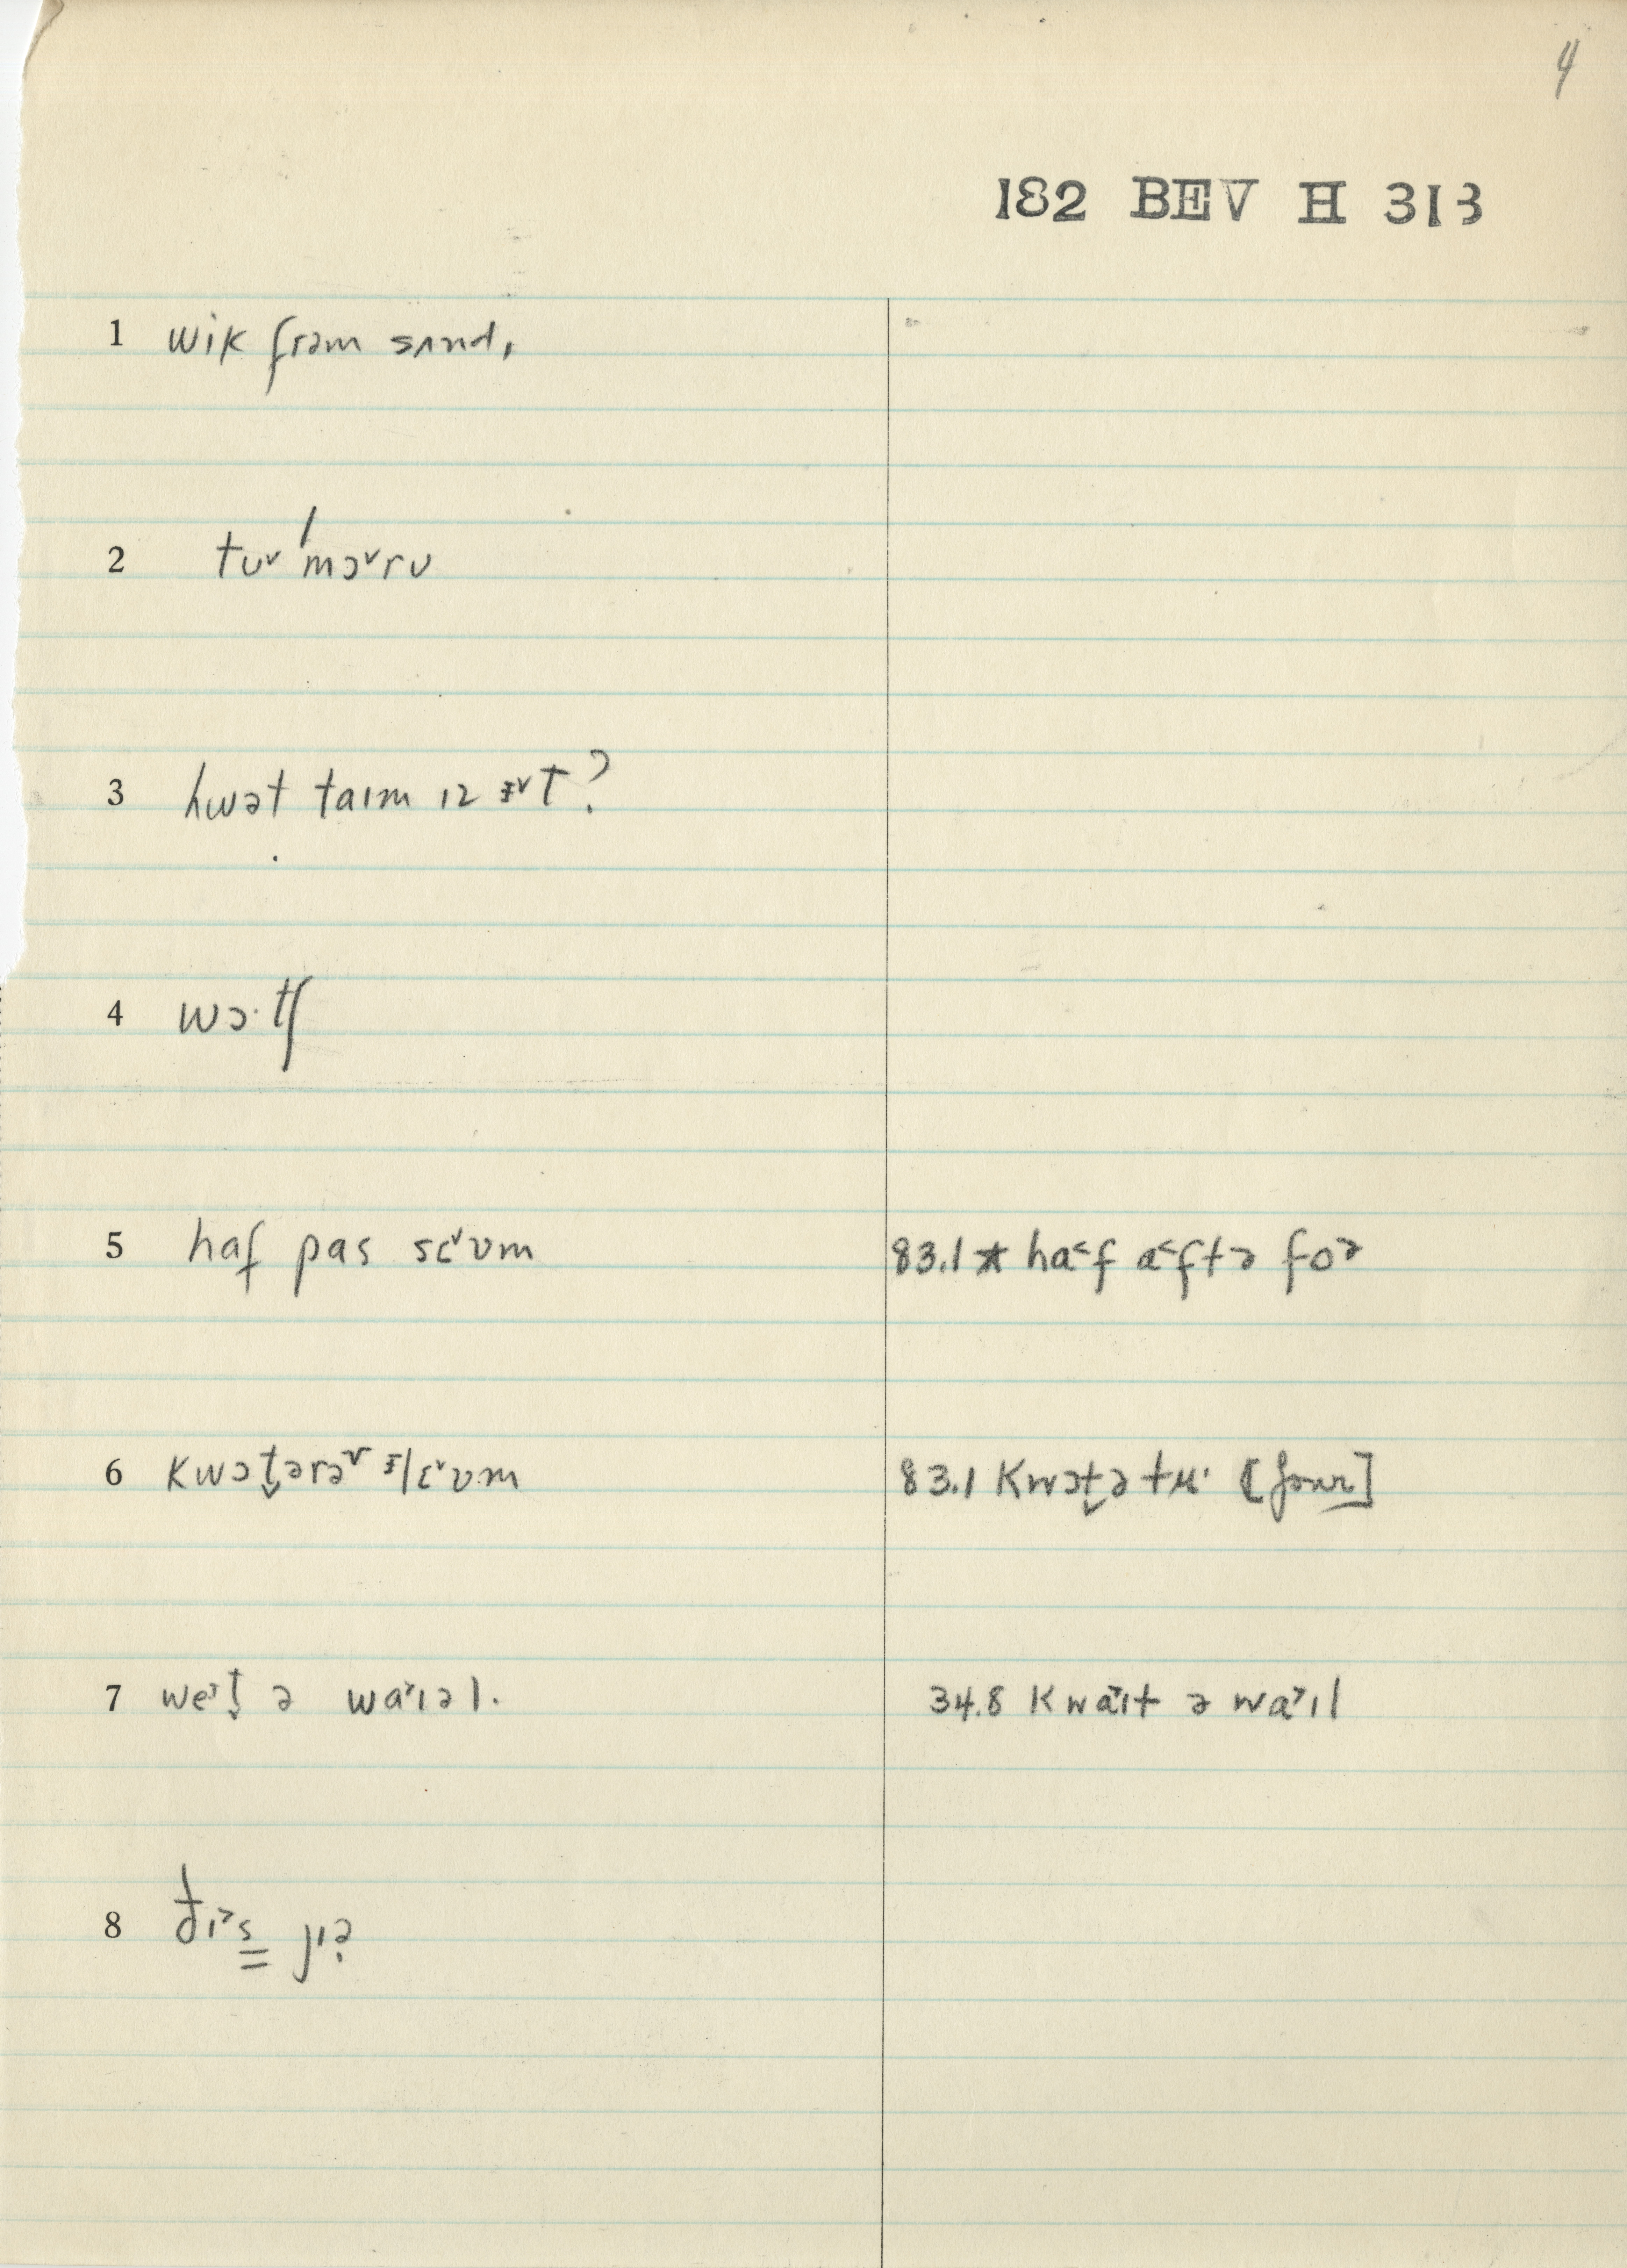 4
182 BEV H 313
1 wik frəm sʌnd,
2 tʊ˅ ˈmɔ˅rʊ
3 hwət taɪm ɪz ᵻ˅t?
4 wɔ·tʃ
5 haf pas sɛ˅ʊm 83.1 * ha˂f a˂ftə fo˃
6 kwɔt̬ərə˅ ᵻlɛ˅ʊm 83.1 kwɔt̬ə tʉ· [four]
7 we˃t̬ ə wa˃ɪəl. 34.8 kwa˃ɪt ə wa˃ɪl
8 ðɪ˃s̳ jɪə̣